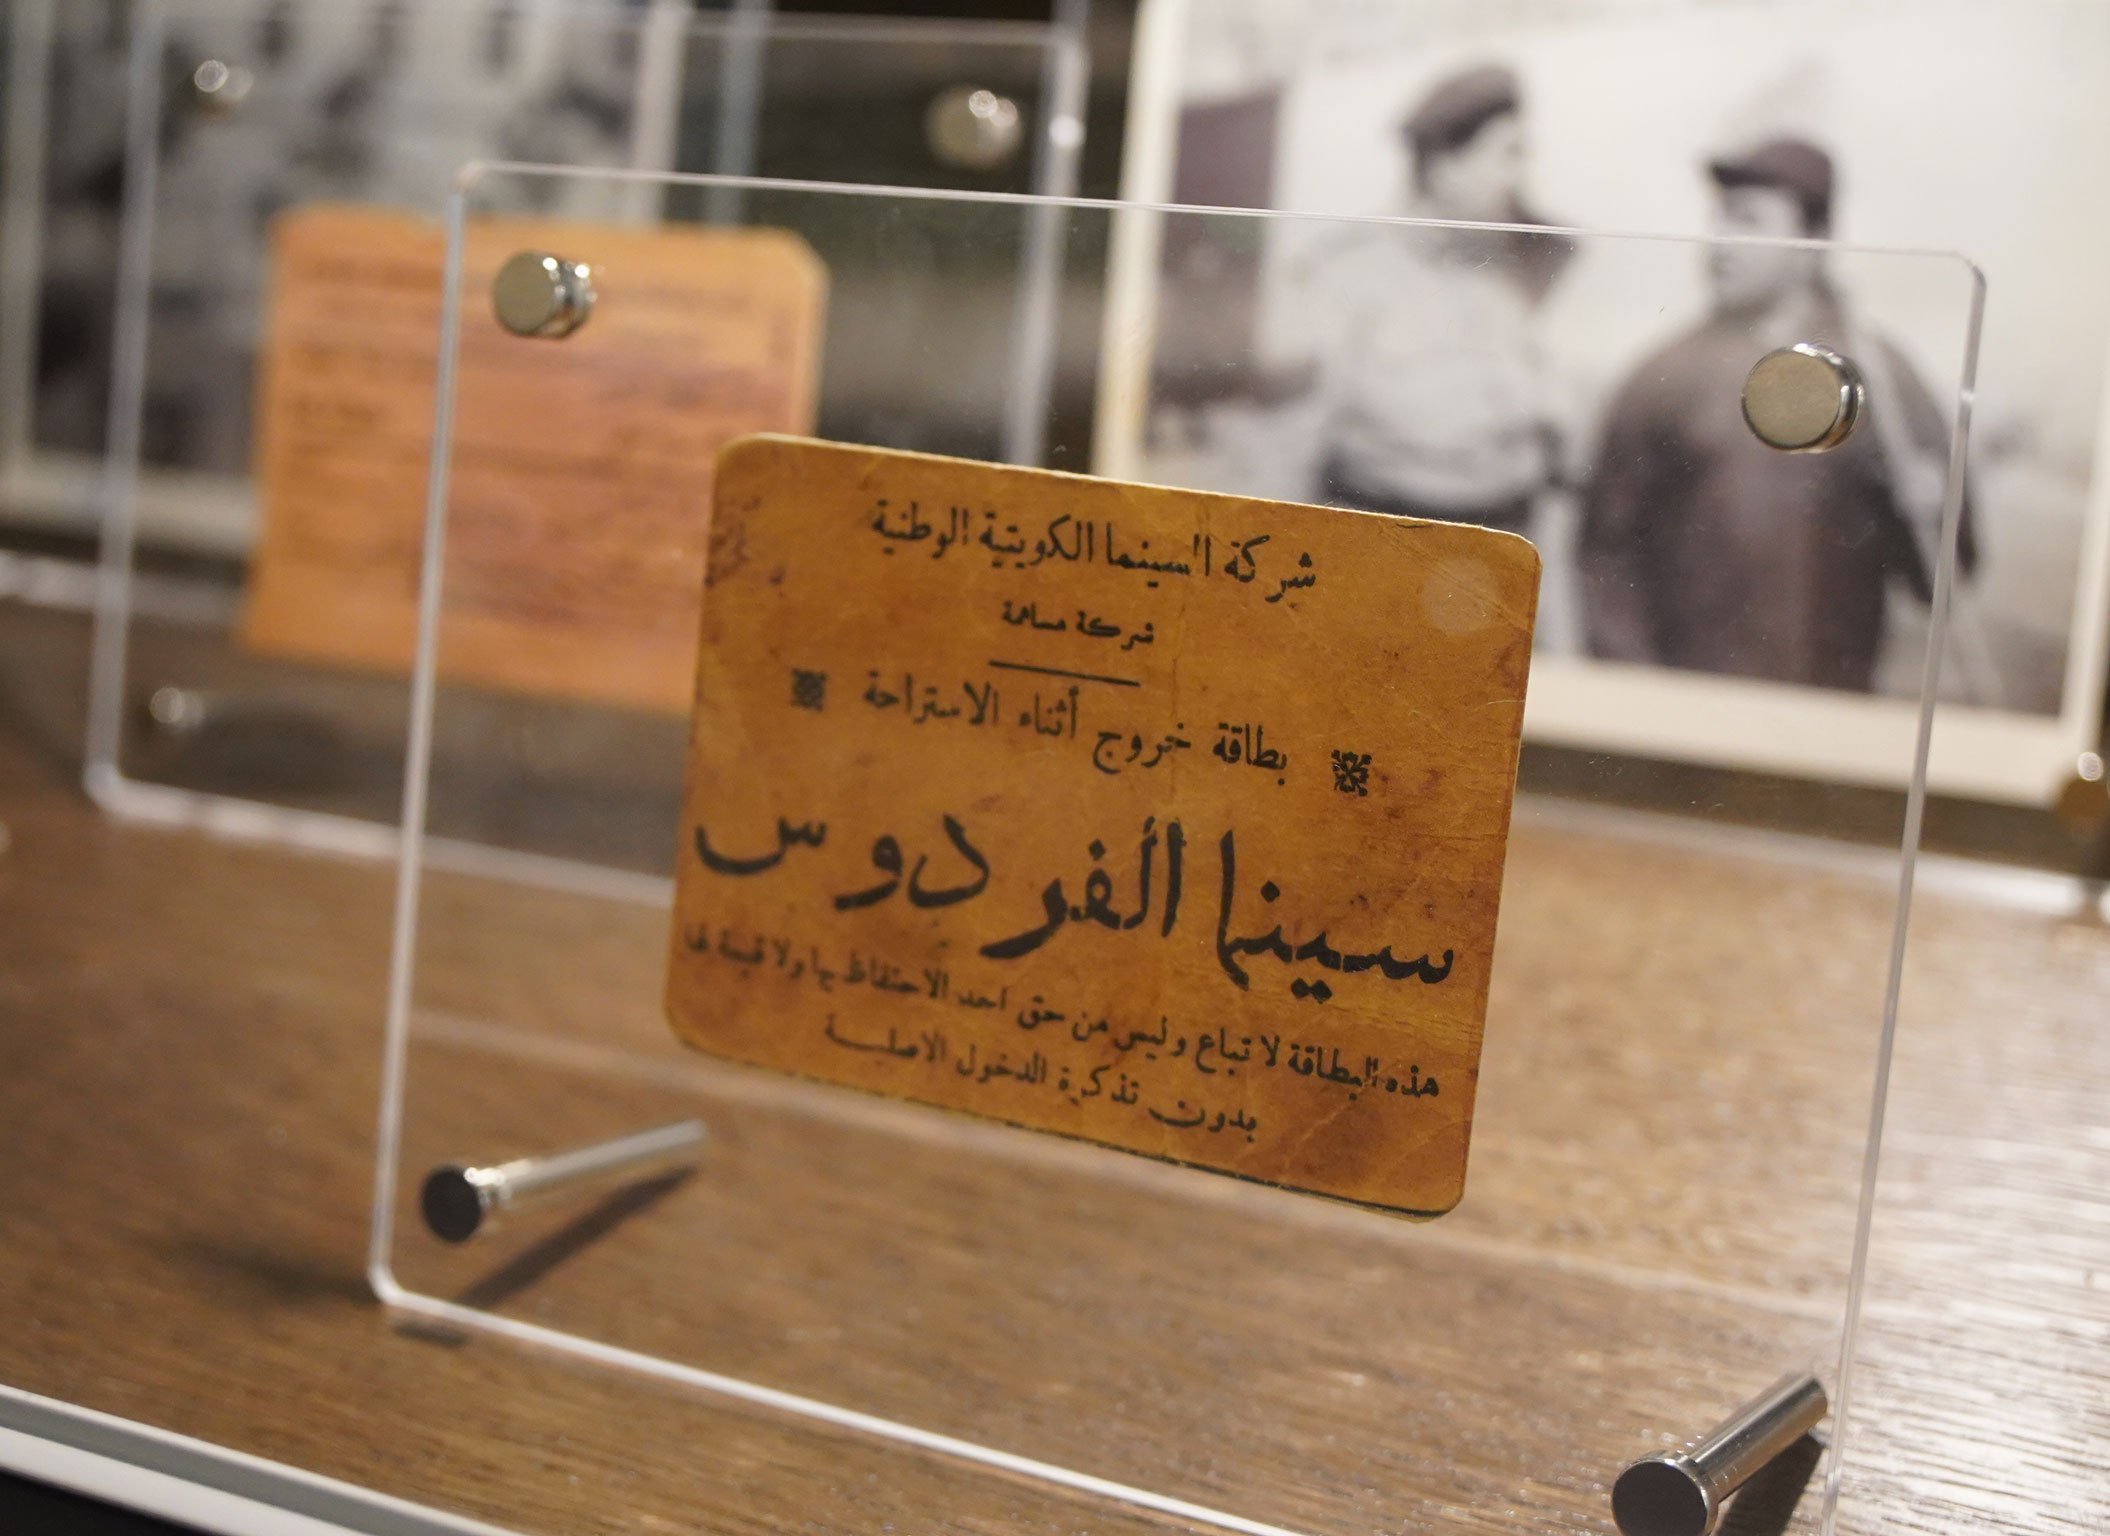 شركة السينما الكويتية الوطنية
شركة مساهمة
بطاقة خروج أثناء الاستراحة
سينما الفردوس
هذه البطاقة لا تباع وليس من حق احد الاحتفاظ بها ولا قيمة لها
بدون تذكرة الدخول الاصلية